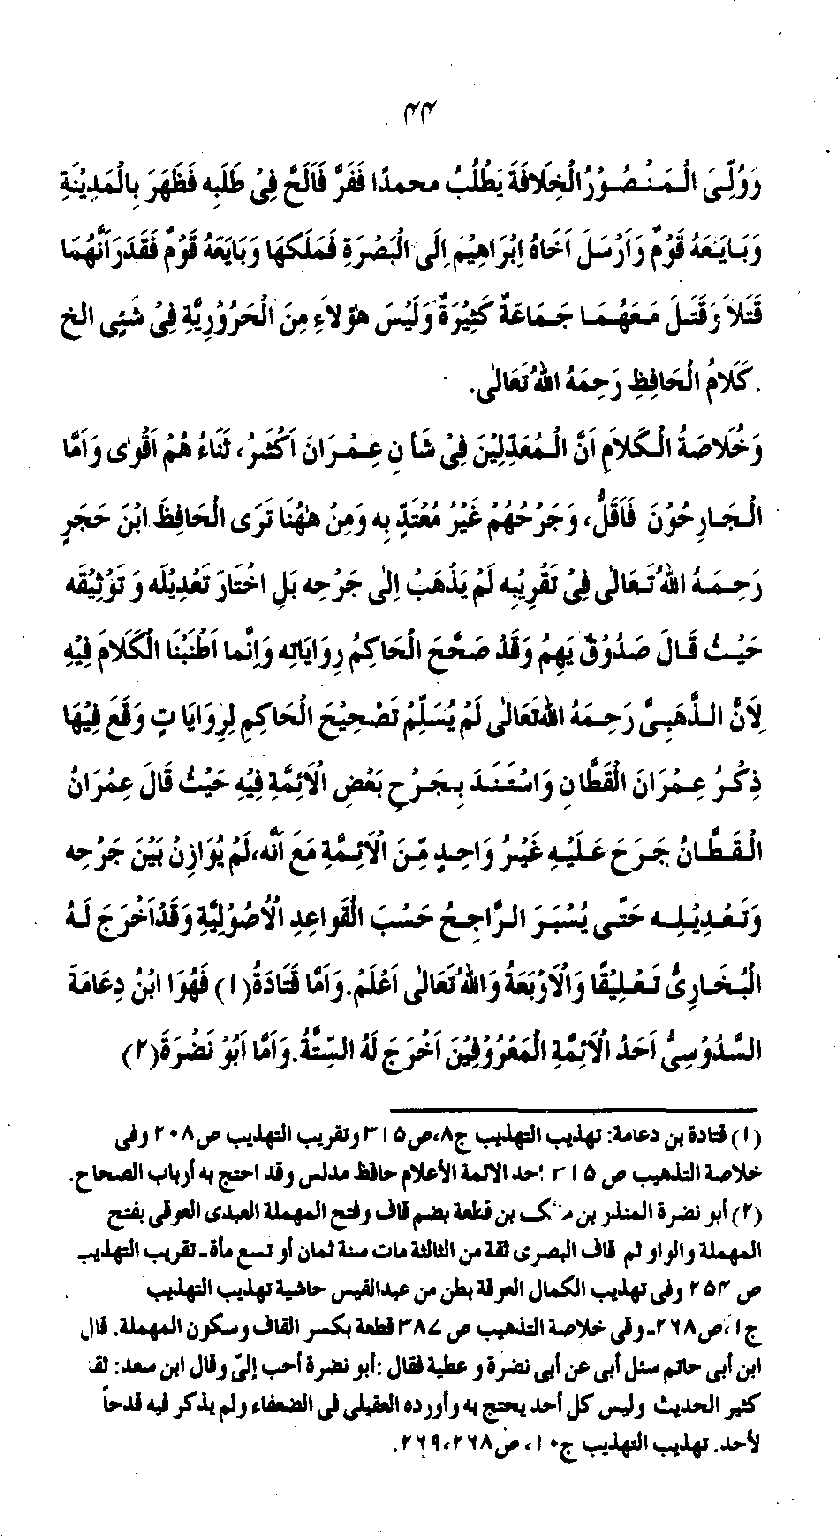 ۴۴
وَوُلِّىَ الْمَنْصُوْرُالْخِلَافَةَ يَطْلُبُ محمدًا فَفَرَّ فَاَلَحَّ فِىْ طَلَبِه فَظَهَرَ بِالْمَدِيْنَةِ
وَبَايَعَهُ قَوْمٌ وَاَرْسَلَ اَخَاهُ اِبْرَاهِيْمَ اِلَى الْبَصْرَةِ فَمَلَكَهَا وَبَايَعَهُ قَوْمٌ فَقَدَرَاَنَّهُمَا
قَتَلاَ وَقَتَلَ مَعَهُمَا جَمَاعَةٌ كَثِيْرَةٌ وَلَيْسَ هؤلاءِ مِنَ الْحَرُوْرِيَّةِ فِىْ شَئِى الخ
كَلاَمُ الْحَافِظِ رَحِمَهُ اللهُ تَعَالٰى.
وَخُلَاصَةُ الْكَلاَمِ اَنَّ الْمُعَدِّلِيْنَ فِىْ شَأْنِ عِمْرَانَ اَكْثَرُ، ثَنَاءُ هُمْ اَقْوٰى وَاَمَّا
الْجَارِحُوْنَ فَاَقَلُّ، وَجَرْحُهُمْ غَيْرُ مُعْتَدٍّ بِه وَمِنْ هٰهُنَا تَرَى الْحَافِظَ ابْنَ حَجَرٍ
رَحِمَهُ اللهُ تَعَالٰى فِىْ تَقْرِيْبِه لَمْ يَذْهَبْ اِلٰى جَرْحِه بَلِ اخْتَارَ تَعْدِيْلَه وَ تَوْثِيْقَه
حَيْثُ قَالَ صَدُوْقٌ يَهِمُ وَقَدْ صَحَّحَ الْحَاكِمُ رِوَايَاتِه وَاِنَّما اَطْنَبْنَا الْكَلاَمَ فِيْهِ
لِاَنَّ الذَّهَبِىَّ رَحِمَهُ اللهُ تَعَالٰى لَمْ يُسَلِّمْ تَصْحِيْحَ الْحَاكِمِ لِرِوَايَا تٍ وَقَعَ فِيْهَا
ذِكْرُ عِمْرَانَ الْقَطَّانِ وَاسْتَنَدَ بِجَرْحِ بَعْضِ الْاَئِمَّةِ فِيْهِ حَيْثُ قَالَ عِمْرَانُ
الْقَطَّانُ جَرَحَ عَلَيْهِ غَيْرُ وَاحِدٍ مِّنَ الْاَئِمَّةِ مَعَ اَنَّه، لَمْ يُوَازِنْ بَيْنَ جَرْحِه
وَتَعْدِيْلِه حَتّٰى يُسْبَرَ الرَّاجِحُ حَسْبَ الْقَوَاعِدِ الْاُصُوْلِيَّةِ وَقَدْاَخْرَجَ لَهُ
الْبُخَارِىُّ تَعْلِيْقًا وَالْاَرْبَعَةُ وَاللهُ تَعَالٰى اَعْلَمُ. وَاَمَّا قَتَادَةُ(۱) فَهُوَا ابْنُ دِعَامَةَ
السَّدُوْسِىُّ اَحَدُ الْاَئِمَّةِ الْمَعْرُوْفِيْنَ اَخْرَجَ لَهُ السِّتَّةُ. وَاَمَّا اَبُوْ نَضْرَةَ(۲)
(۱) قتادة بن دعامة: تهذيب التهذيب ج۸،ص۳۱۵ وتقريب التهذيب ص۲۰۸ وفى
خلاصة التذهيب ص ۳۱۵ احد الائمة الأعلام حافظ مدلس وقد احتج به أرباب الصحاح.
(۲) أبو نضرة المنذر بن مالك بن قطعة بضم قاف وفتح المهملة العبدى العوقى بفتح
المهملة والواو ثم قاف البصرى ثقة من الثالثة مات سنة ثمان أو تسع مأة۔ تقريب التهذيب
ص ۲۵۴ وفى تهذيب الكمال العوقة بطن من عبدالقيس حاشية تهذيب التهذيب
ج۱،ص۲۶۸۔ وفى خلاصة التذهيب ص ۳۸۷ قطعة بكسر القاف وسكون المهملة. قال
ابن أبى حاتم سئل أبى عن أبى نضرة و عطية فقال :أبو نضرة أحب إلىّ وقال ابن سعد: ثقة
كثير الحديث وليس كل أحد يحتج به وأورده العقيلى فى الضعفاء ولم يذكر فيه قدحاً
لأحد. تهذيب التهذيب ج۱۰، ص۲۶۸، ۲۶۹.